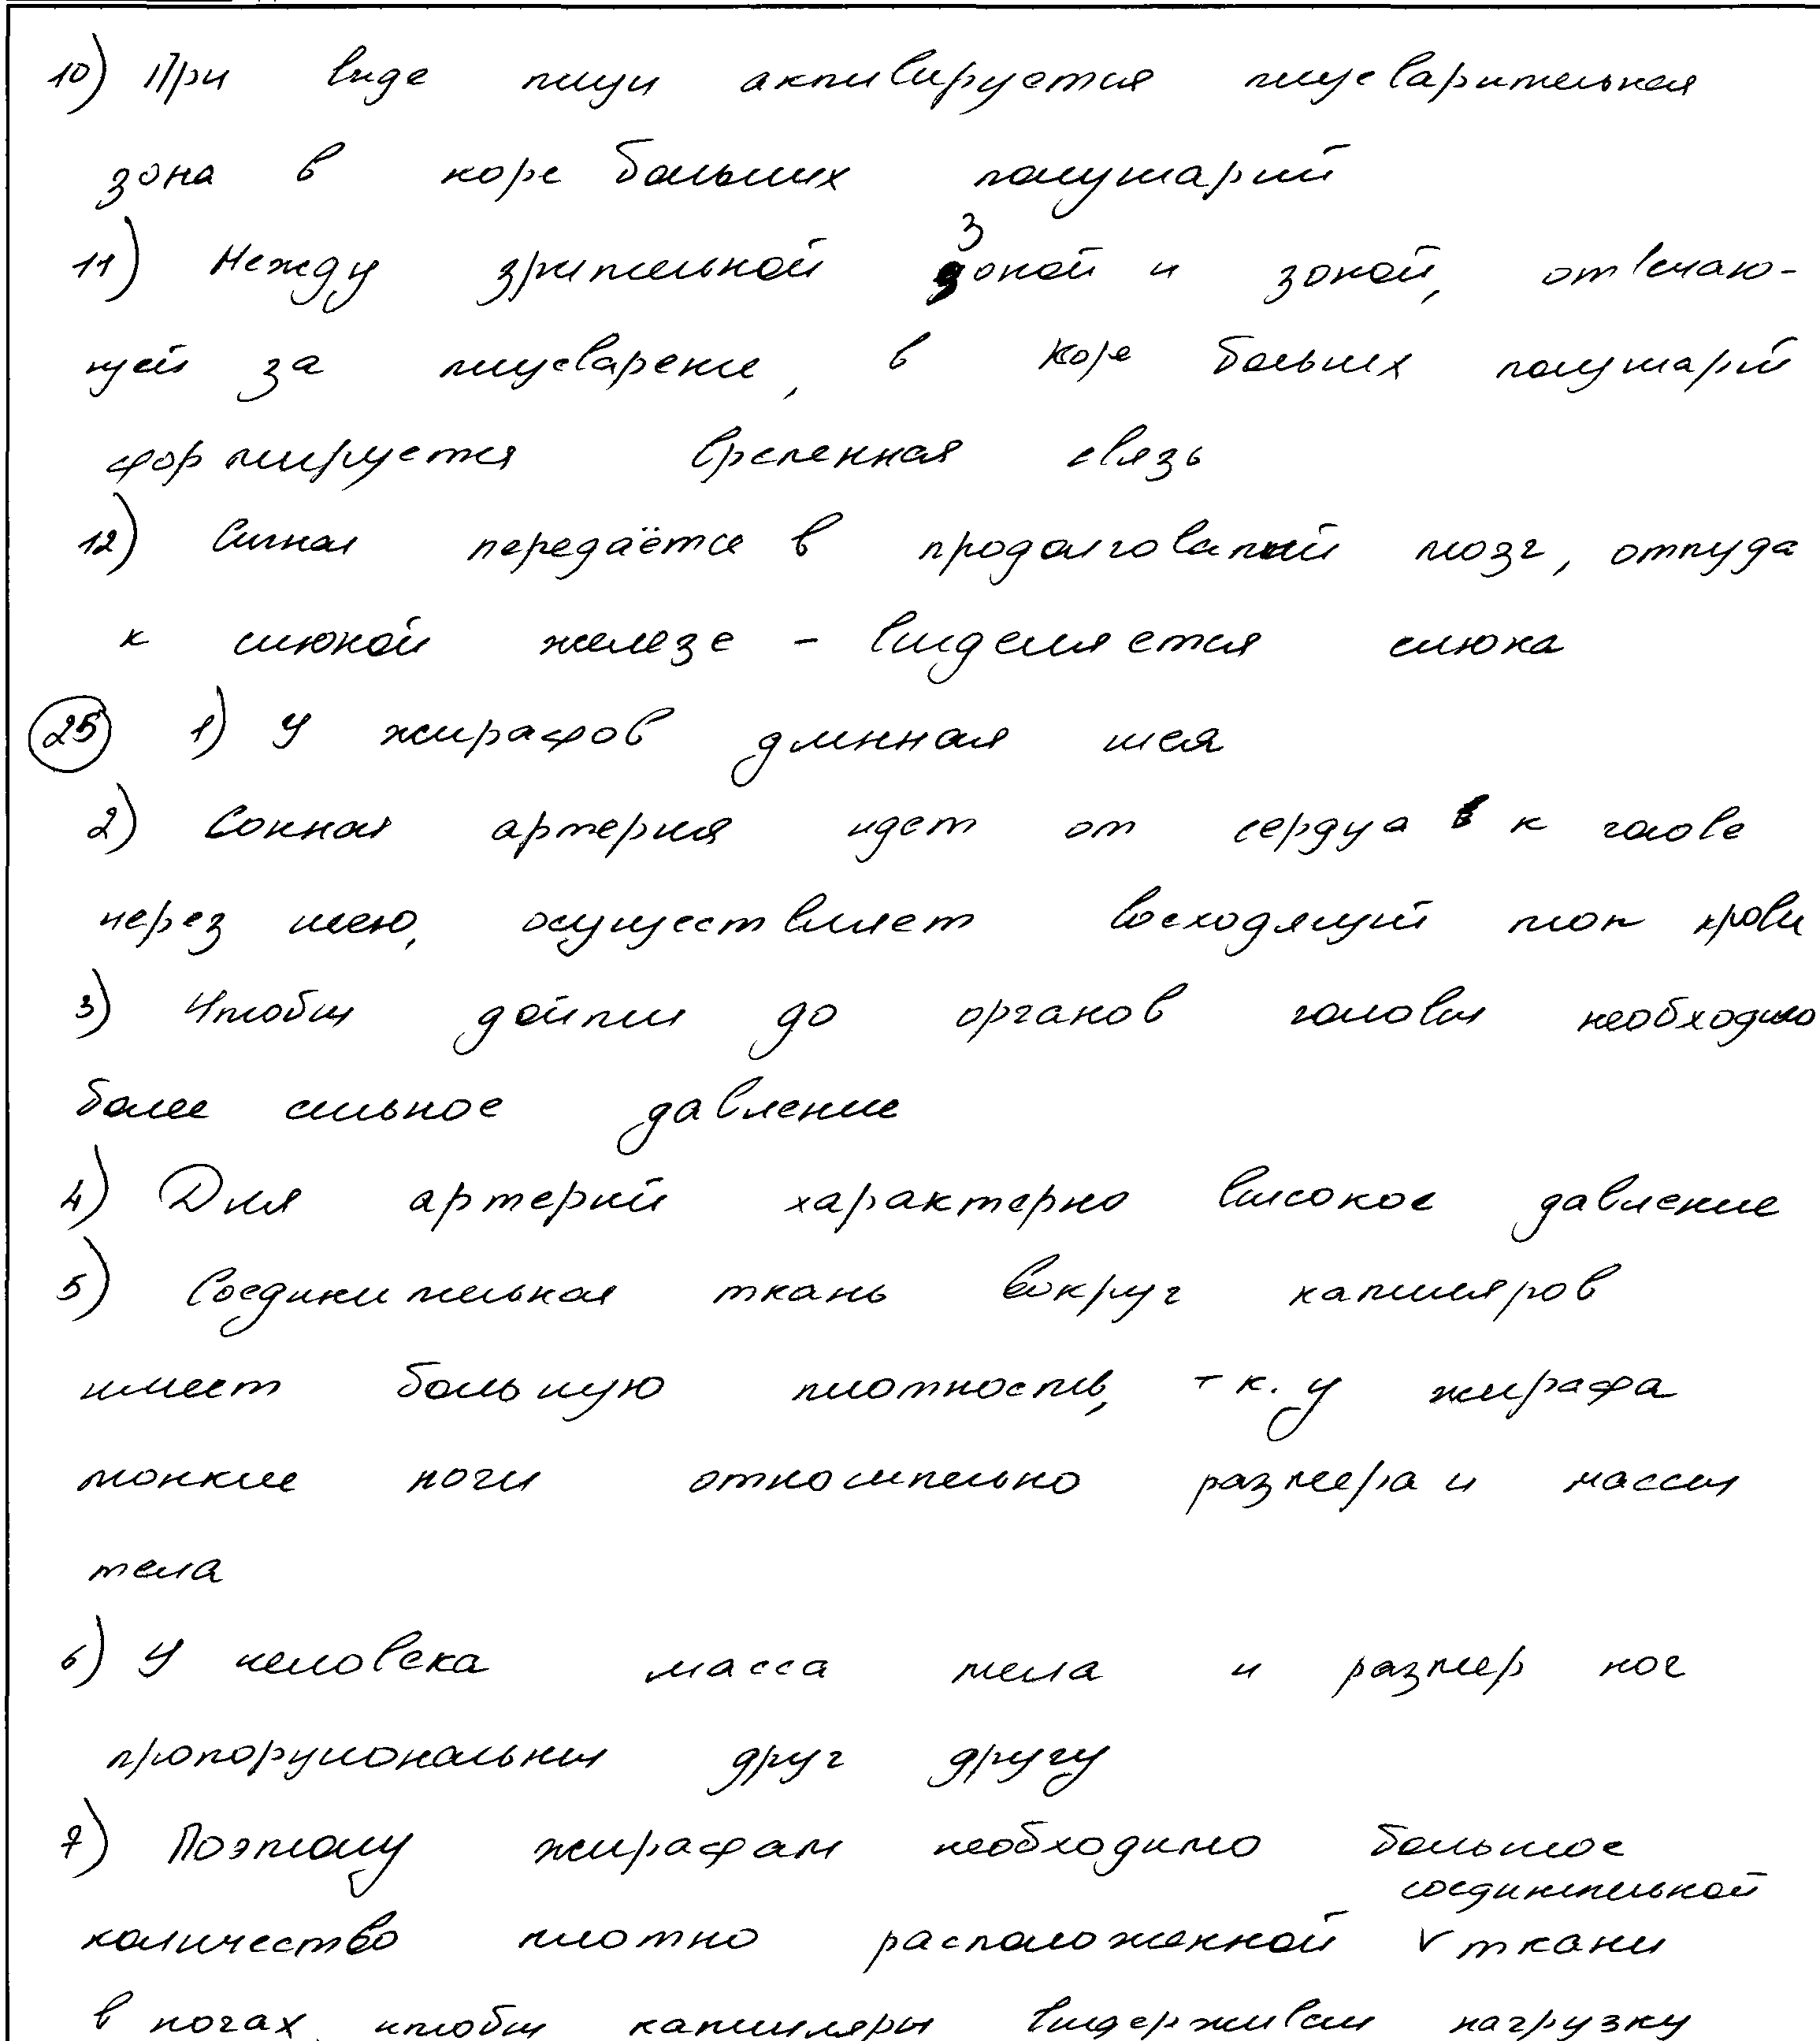 10) При виде пищи активируется пищеварительная
зона в коре больших полушарий
11) Между зрительной зоной и зоной, отвечаю-
щей за пищеварение, в коре больших полушарий
формируется временная связь
12) Сигнал передаётся в продолговатый мозг, откуда
к слюной железе - выделяется слюна
25 1) У жирафов длинная шея
2) Сонная артерия идет от сердца к голове
через шею, осуществляет восходящий ток крови
3) Чтобы дойти до органов головы необходимо
более сильное давление
4) Для артерий характерно высокое давление
5) Соединительная ткань вокруг капилляров
имеет большую плотность, т к. у жирафа
тонкие ноги относительно размера и массы
тела
6) У человека масса тела и размер ног
пропорциональны друг другу
7) Поэтому жирафам необходимо большое
количество плотно расположенной соединительной ткани
в ногах, чтобы капилляры выдерживали нагрузку